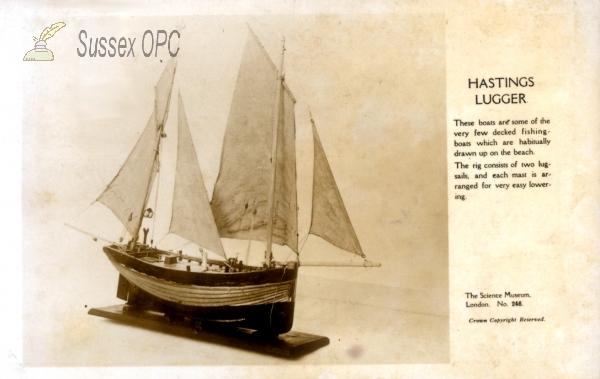 Sussex OPC
HASTINGS
LUGGER
These boats are some of the
very few decked fishing-
boats which are habitually
drawn up on the beach.
The rig consists of two lug-
sails, and each mast is ar-
ranged for very easy lower-
ing.
The Science Museum,
London. No. 268.
Crown Copyright Reserved.